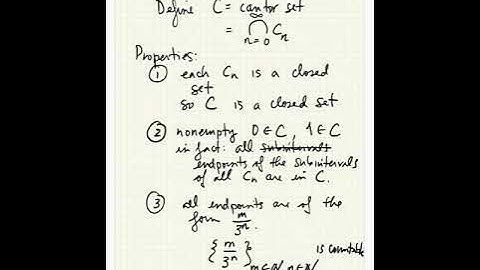 Define C = cantor set
= ∞⋂n=0 Cn
Properties:
① each Cn is a closed
set
so C is a closed set
② nonempty 0 ∈ C, 1 ∈ C
in fact: all subintervals
endpoints of the subintervals
of all Cn are in C.
③ all endpoints are of the
form m/3^n.
{m/3^n} m∈ℕ, n∈ℕ is countable